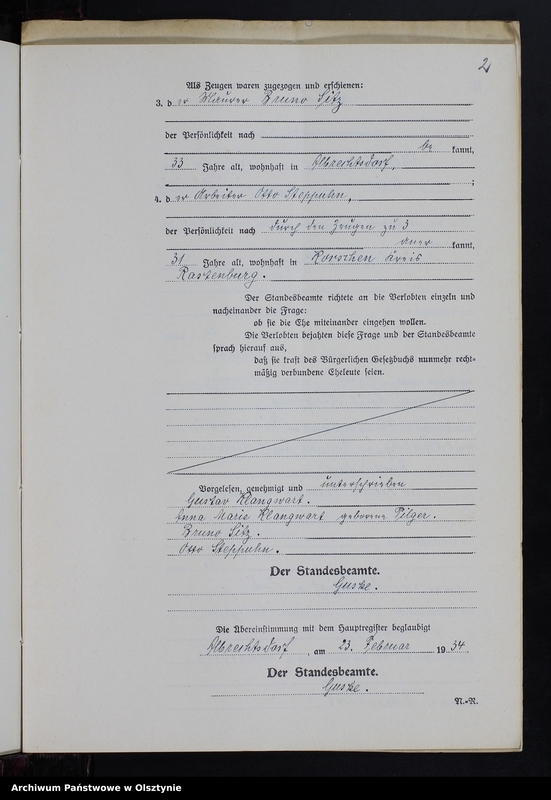 2
Als Zeugen waren zugezogen und erschienen:
3. der Maurer Bruno Sitz
der Persönlichkeit nach
be kannt,
33 Jahre alt, wohnhaft in Albrechtsdorf,
;
4. der Arbeiter Otto Steppuhn,
der Persönlichkeit nach durch den Zeugen zu 3
aner kannt,
31 Jahre alt, wohnhaft in Korschen Kreis
Rastenburg.
Der Standesbeamte richtete an die Verlobten einzeln und
nacheinander die Frage:
ob sie die Ehe miteinander eingehen wollen.
Die Verlobten bejahten diese Frage und der Standesbeamte
sprach hierauf aus,
daß sie kraft des Bürgerlichen Gesetzbuchs nunmehr recht-
mäßig verbundene Eheleute seien.
Vorgelesen, genehmigt und unterschrieben
Gustav Klangwart.
Anna Marie Klangwart geborene Pilger.
Bruno Sitz.
Otto Steppuhn.
Der Standesbeamte.
Guske.
Die Übereinstimmung mit dem Hauptregister beglaubigt
Albrechtsdorf, am 23. Februar 1934.
Der Standesbeamte.
Guske.
N.-R.
Archiwum Państwowe w Olsztynie